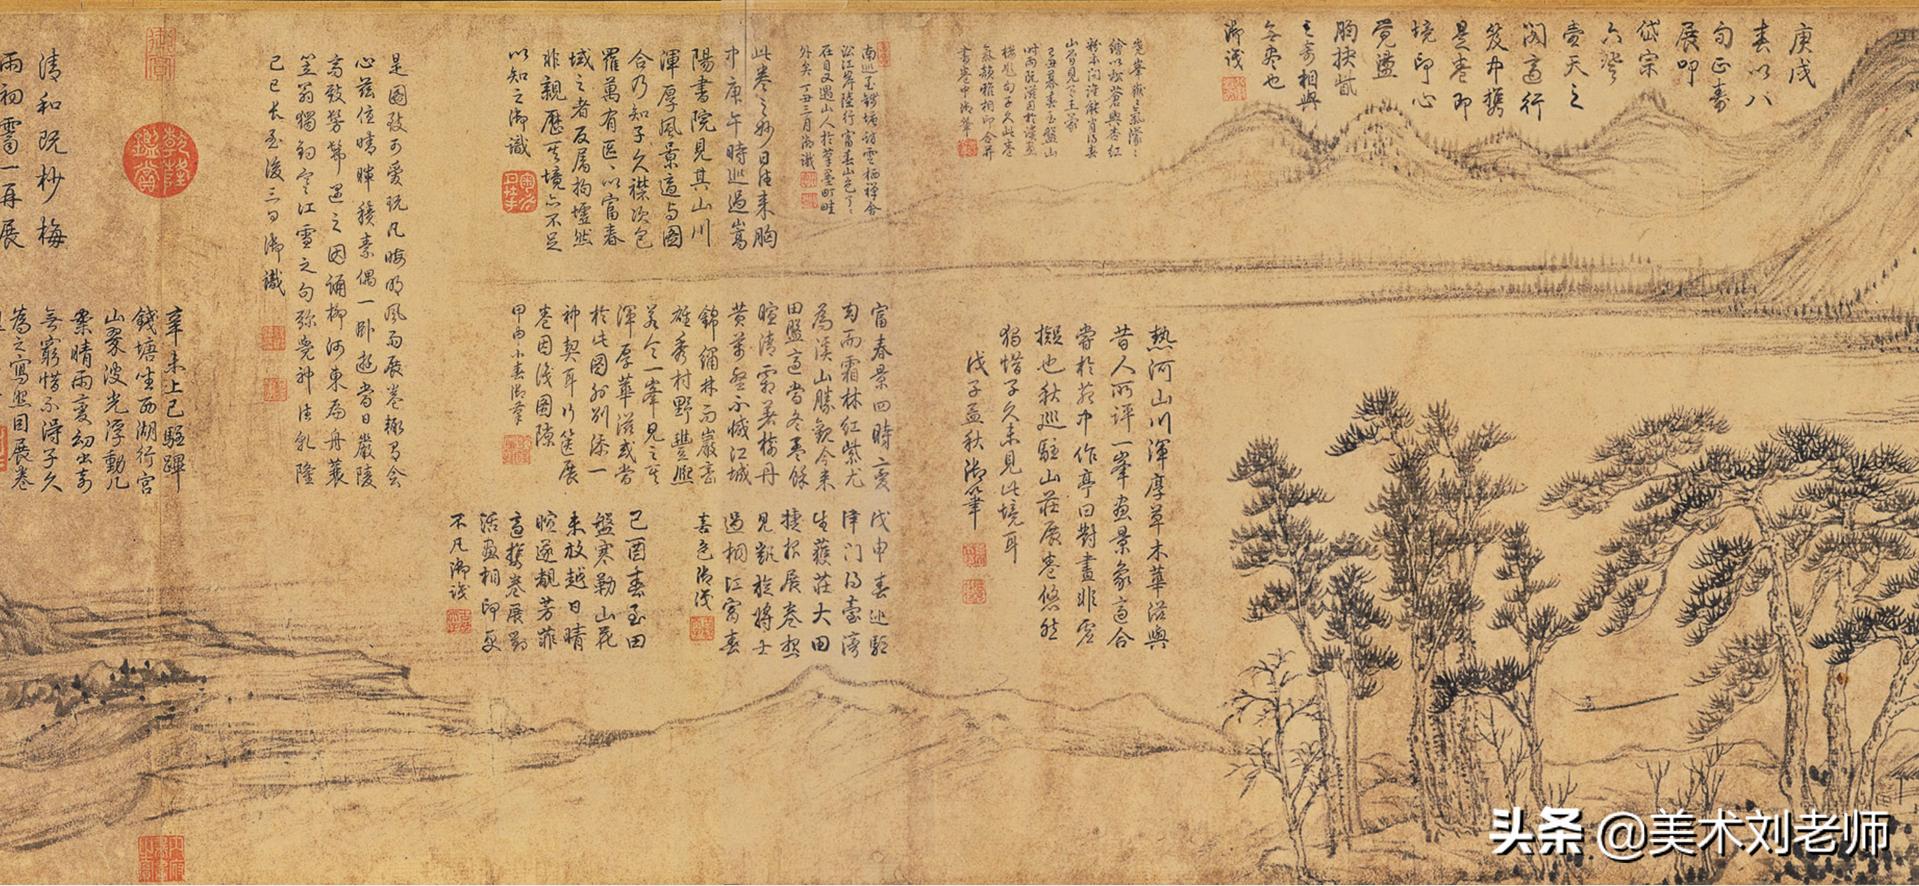 庚戌
春以八
旬正壽
展叩
岱宗
六澄
壹天之
閣高行
笈中攜
是卷即
境印心
覺盪
胸抉眥
之奇相與
無盡也
御識
熱河山川渾厚草木華滋與
昔人所評一峯畫景象適合
嘗於苑中作亭曰對畫非虛
擬也秋巡駐山莊展卷悠然
獨惜子久未見此境耳
戊子孟秋御筆
南巡
外矣丁丑三月御識
此卷之妙日往來胸
中庚午時巡過嵩
陽書院見其山川
渾厚風景適與圖
合乃知子久襟次包
羅萬有區區以富春
域之者反屬拘墟然
非親歷其境亦不足
以知之御識
富春景四時變
而霜林紅紫尤
為溪山勝觀今來
田盤適當冬孟餘
暄清霜著樹丹
黃萬疊不減江城
錦繡林而巖壑
雄秀村野豐熙
若令一峯見之其
渾厚華滋或當
於此圖外別添一
神契耳行篋展
卷因淺圖隙
甲申小春御筆
戊申春巡駐
津門得臺灣
生獲莊大田
捷報展卷想
見凱旋將士
過桐江富春
喜色御識
己酉春至田
盤寒勒山花
未放越日晴
暄遂靚芳菲
高攜卷展對
活畫相印更
不凡御識
是圖致可愛玩凡晦明風雨展卷輒有會
心茲值晴暉積素偶一臥遊當日嚴陵
高致髣髴遇之因誦柳河東孤舟蓑
笠翁獨釣寒江雪之句彌覺神往乾隆
己巳長至後三日御識
乾隆鑑賞
辛未上巳駐蹕
錢塘生西湖行宮
山翠波光浮動几
案晴雨變幻出奇
無窮惜不得子久
為之寫照因展卷
清和既杪梅
雨初霽一再展
头条 @美术刘老师